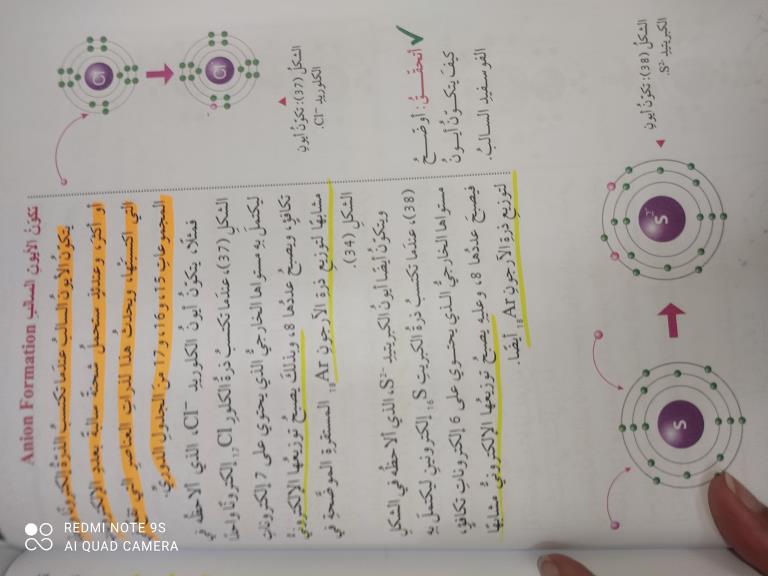 تكوّنُ الأيونِ السالبِ Anion Formation
يتكوّنُ الأيونُ السالبُ عندَما تكتسبُ الذرةُ إلكترونًا
أو أكثرَ، وعندئذٍ ستحملُ شحنةً سالبةً بعددِ الإلكتروناتِ
التي اكتسبَتْها، ويحدثُ هذا لذراتِ العناصرِ التي تقعُ في
المجموعاتِ 15، و16، و17 منَ الجدولِ الدوريِّ.
فمثلًا، يتكوّنُ أيونُ الكلوريدِ Cl⁻، الذي ألاحظُهُ في
الشكلِ (37)، عندَما تكتسبُ ذرةُ الكلورِ ₁₇Cl إلكترونًا واحدًا
ليكتملَ بهِ مستواها الخارجيُّ الذي يحتوي على 7 إلكتروناتِ
تكافؤٍ، ويصبحُ عددُها 8، وبذلكَ يصبحُ توزيعُها الإلكترونيُّ
مشابهًا لتوزيعِ ذرةِ الأرجونِ ₁₈Ar المستقرةِ الموضّحةِ في
الشكلِ (34).
ويتكوّنُ أيضًا أيونُ الكبريتيدِ S²⁻، الذي ألاحظُهُ في الشكلِ
(38)، عندَما تكتسبُ ذرةُ الكبريتِ ₁₆S إلكترونينِ ليكتملَ بهِ
مستواها الخارجيُّ الذي يحتوي على 6 إلكتروناتِ تكافؤٍ،
فيصبحُ عددُها 8، وعليهِ يصبحُ توزيعُها الإلكترونيُّ مشابهًا
لتوزيعِ ذرةِ الأرجونِ ₁₈Ar أيضًا.
Cl
Cl
الشكلُ (37): تكوّنُ أيونِ
الكلوريدِ Cl⁻.
أتحقّقُ: أوضحُ
كيفَ يتكوّنُ أيونُ
الفوسفيدِ السالبُ.
S
S
الشكلُ (38): تكوّنُ أيونِ
الكبريتيدِ S²⁻.
REDMI NOTE 9S
AI QUAD CAMERA